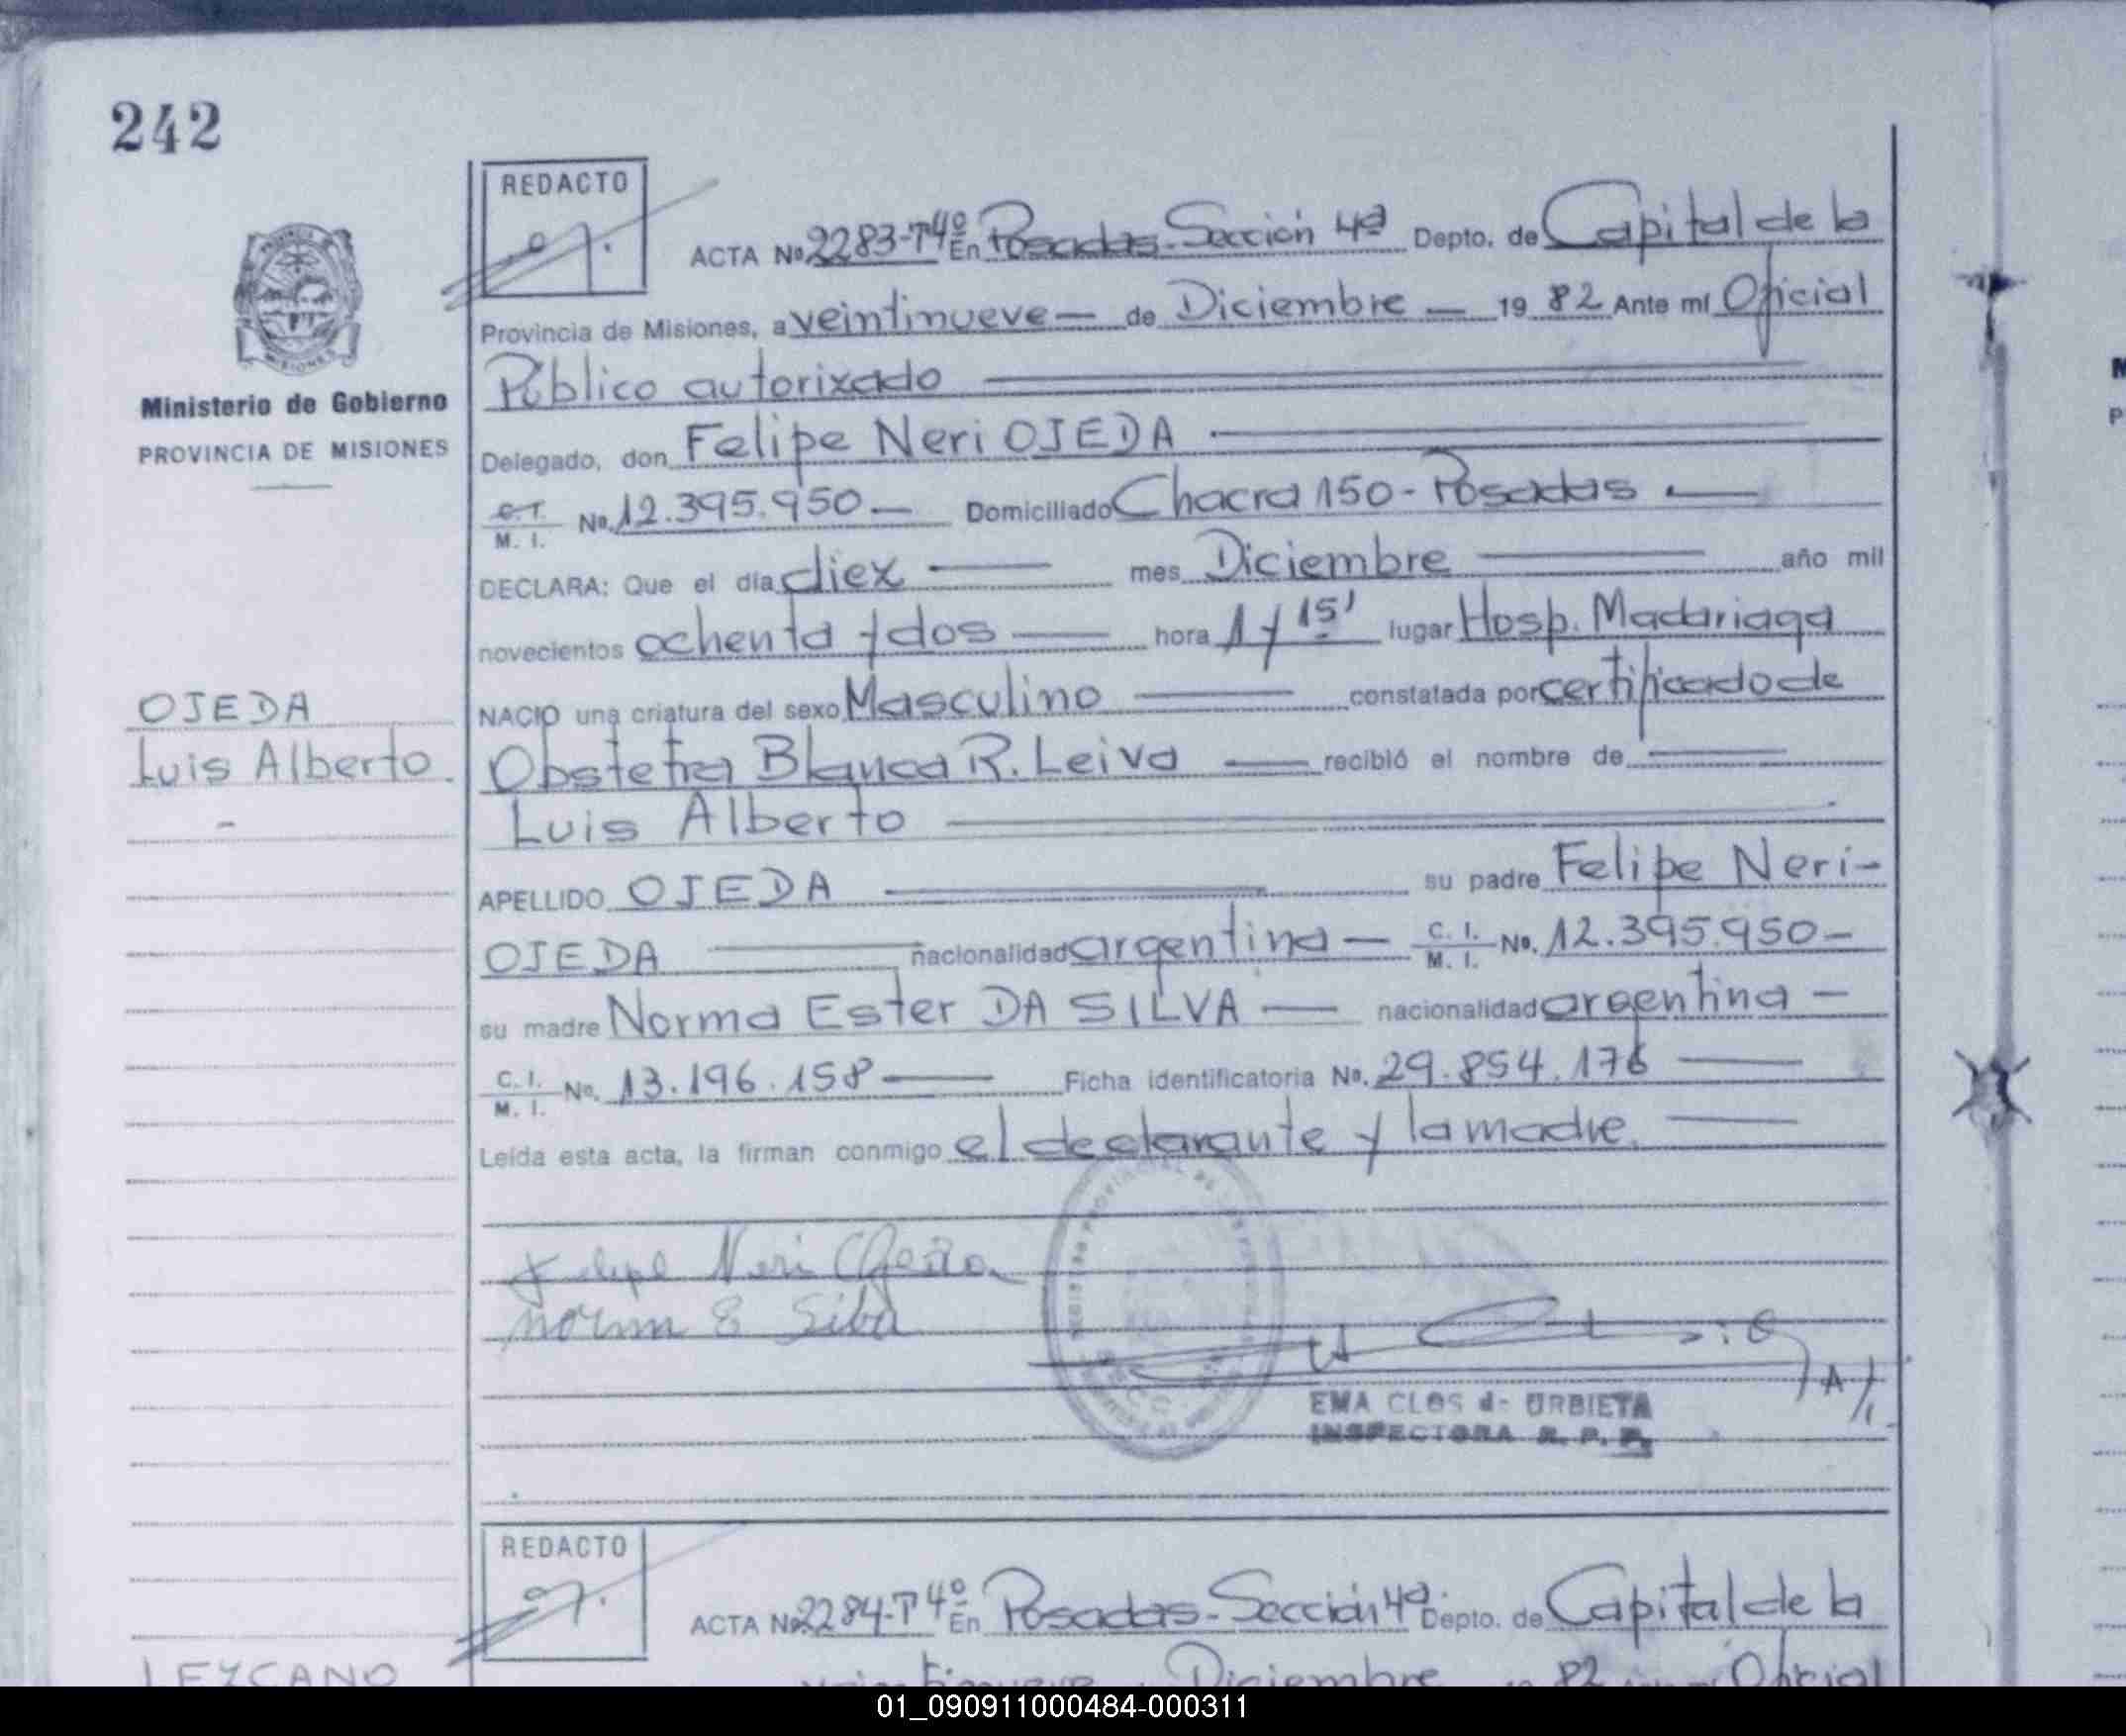 242
REDACTO
ACTA No 2283-T4º En Posadas-Sección 4ª Depto. de Capital de la
Provincia de Misiones, a veintinueve — de Diciembre — 19 82 Ante mí Oficial
Público autorizado
Ministerio de Gobierno
PROVINCIA DE MISIONES
Delegado, don Felipe Neri OJEDA
C.I. M. I. No. 12.395.950 — Domiciliado Chacra 150 - Posadas
DECLARA: Que el día diez — mes Diciembre — año mil
novecientos ochenta y dos — hora 1 y 15' lugar Hosp. Madariaga
OJEDA
Luis Alberto.
NACIO una criatura del sexo Masculino — constatada por certificado de
Obstetra Blanca R. Leiva — recibió el nombre de
Luis Alberto
APELLIDO OJEDA su padre Felipe Neri-
OJEDA nacionalidad argentina — C. I. M. I. No. 12.395.950-
su madre Norma Ester DA SILVA — nacionalidad argentina -
C. I. M. I. No. 13.196.158 — Ficha identificatoria No. 29.854.176
Leída esta acta, la firman conmigo el declarante y la madre.
Felipe Neri Ojeda
Norma E Silva
EMA CLOS de URBIETA
INSPECTORA R. P. P.
REDACTO
ACTA No 2284-T4º En Posadas-Sección 4ª Depto. de Capital de la
LEZCANO
veintinueve Diciembre 82 Oficial
01_090911000484-000311